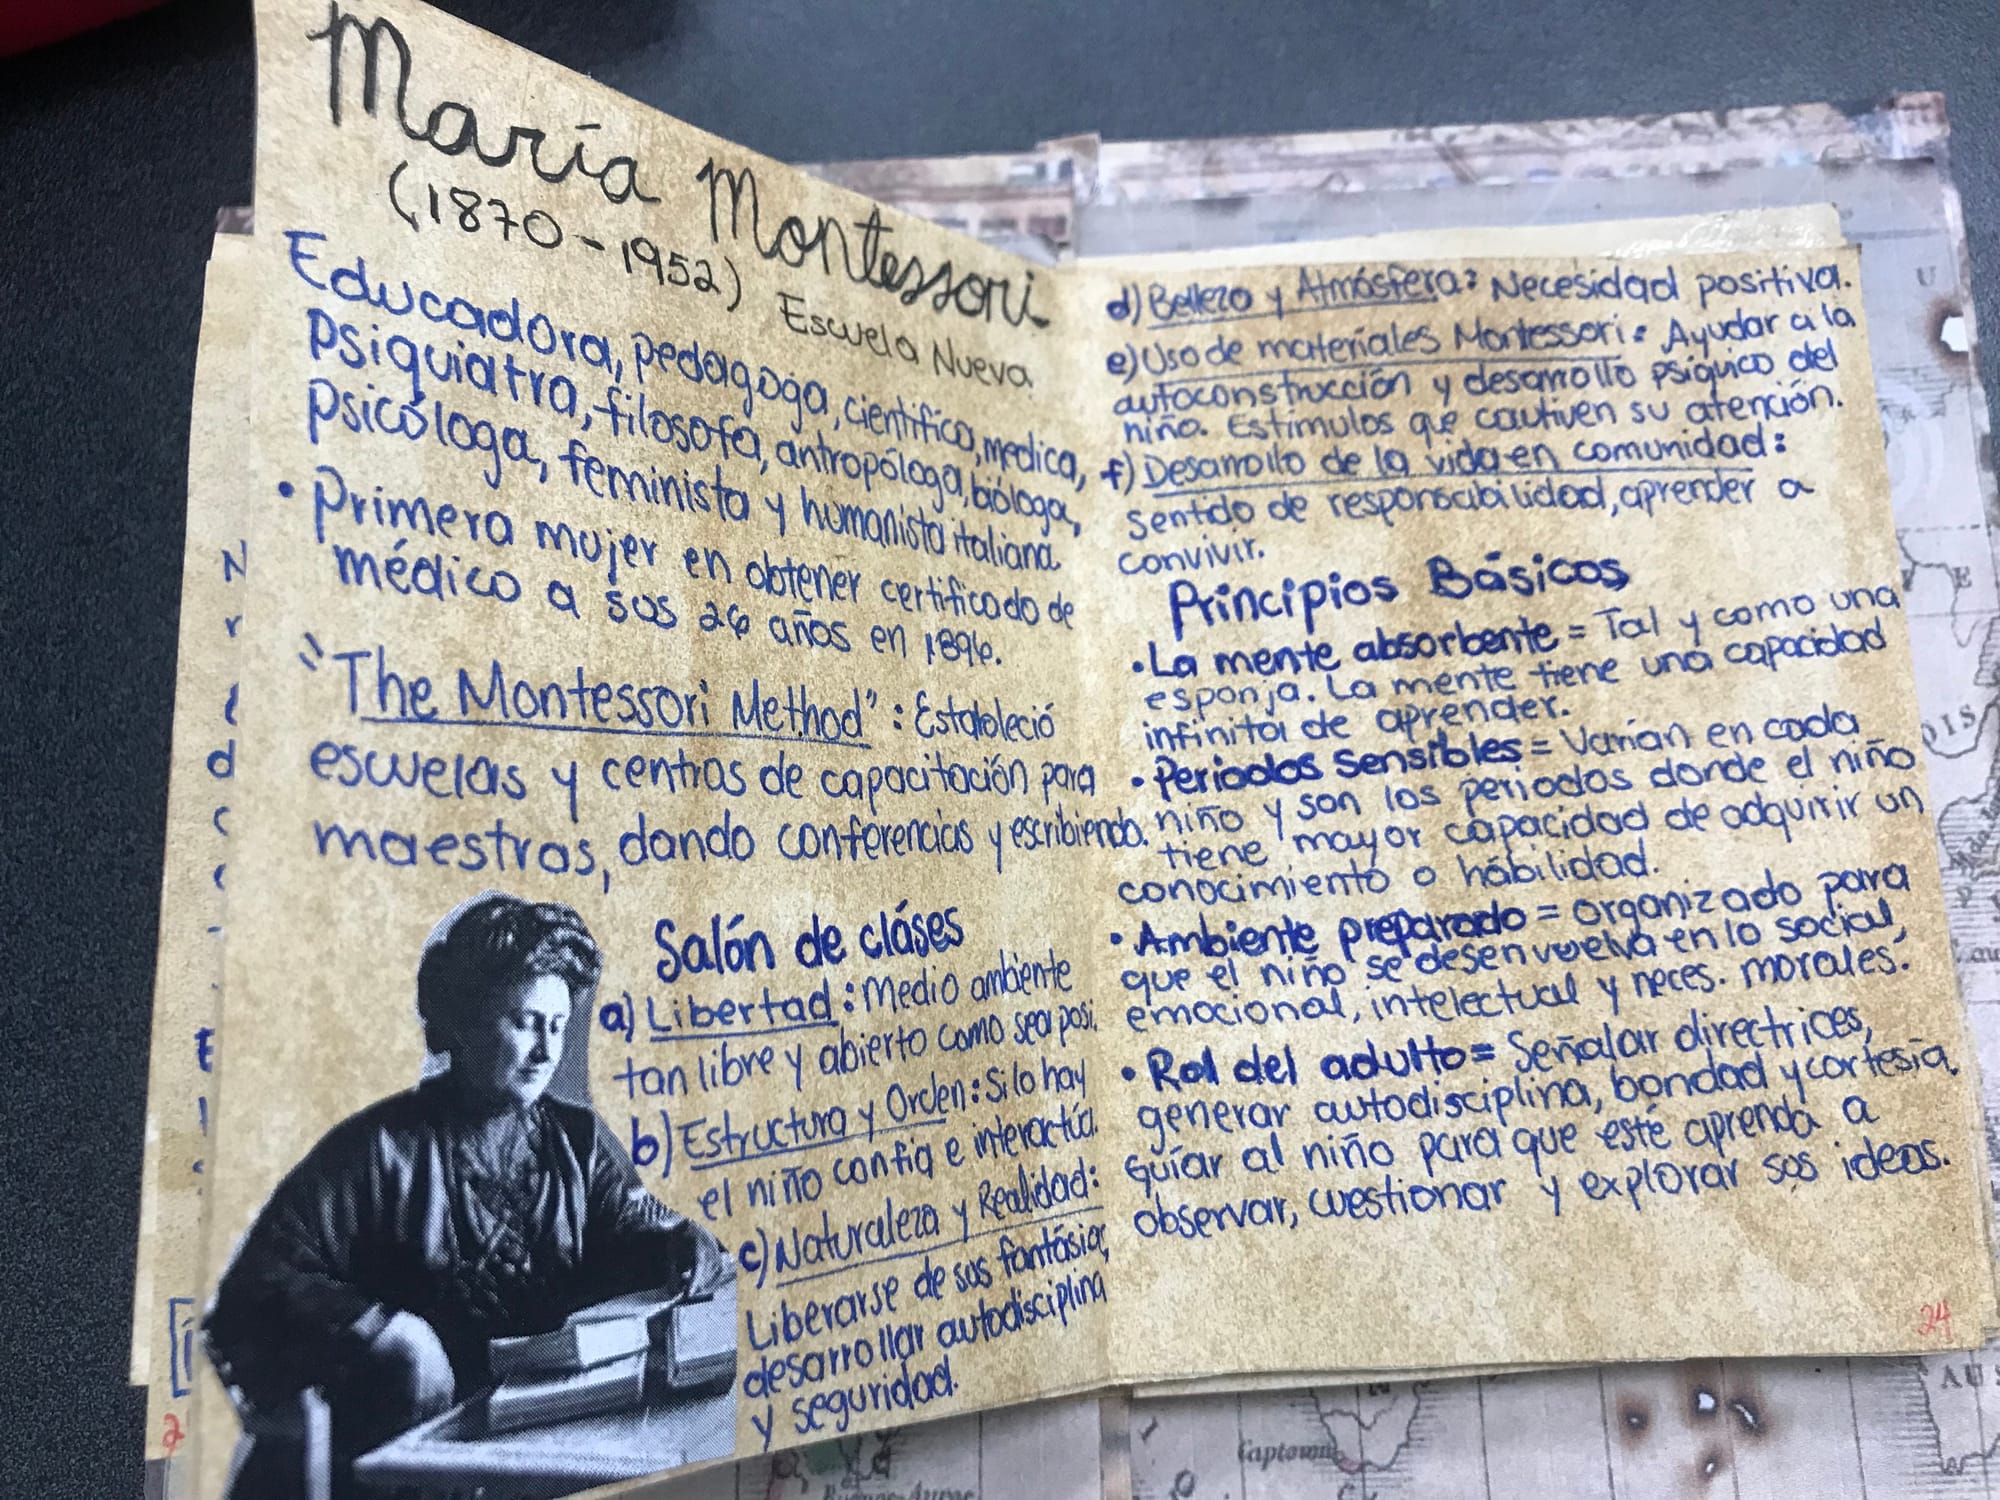 María Montessori
(1870-1952) Escuela Nueva
Educadora, pedagoga, científica, medica,
psiquiatra, filosofa, antropóloga, bióloga,
psicóloga, feminista y humanista italiana.
• Primera mujer en obtener certificado de
médico a sus 26 años en 1896.
"The Montessori Method": Estableció
escuelas y centros de capacitación para
maestros, dando conferencias y escribiendo.
Salón de cláses
a) Libertad: Medio ambiente
tan libre y abierto como sea posi.
b) Estructura y Orden: Si lo hay
el niño confia e interactúa.
c) Naturaleza y Realidad:
Liberarse de sus fantásias,
desarrollar autodisciplina
y seguridad.
d) Belleza y Atmósfera: Necesidad positiva.
e) Uso de materiales Montessori: Ayudar a la
autoconstrucción y desarrollo psíquico del
niño. Estímulos que cautiven su atención.
f) Desarrollo de la vida en comunidad:
sentido de responsabilidad, aprender a
convivir.
Principios Básicos
• La mente absorbente = Tal y como una
esponja. La mente tiene una capacidad
infinita de aprender.
• Periodos sensibles = Varían en cada
niño y son los periodos donde el niño
tiene mayor capacidad de adquirir un
conocimiento o hábilidad.
• Ambiente preparado = organizado para
que el niño se desenvuelva en lo social,
emocional, intelectual y neces. morales.
• Rol del adulto = Señalar directrices,
generar autodisciplina, bondad y cortesía.
Guíar al niño para que esté aprenda a
observar, cuestionar y explorar sus ideas.
24
Captown